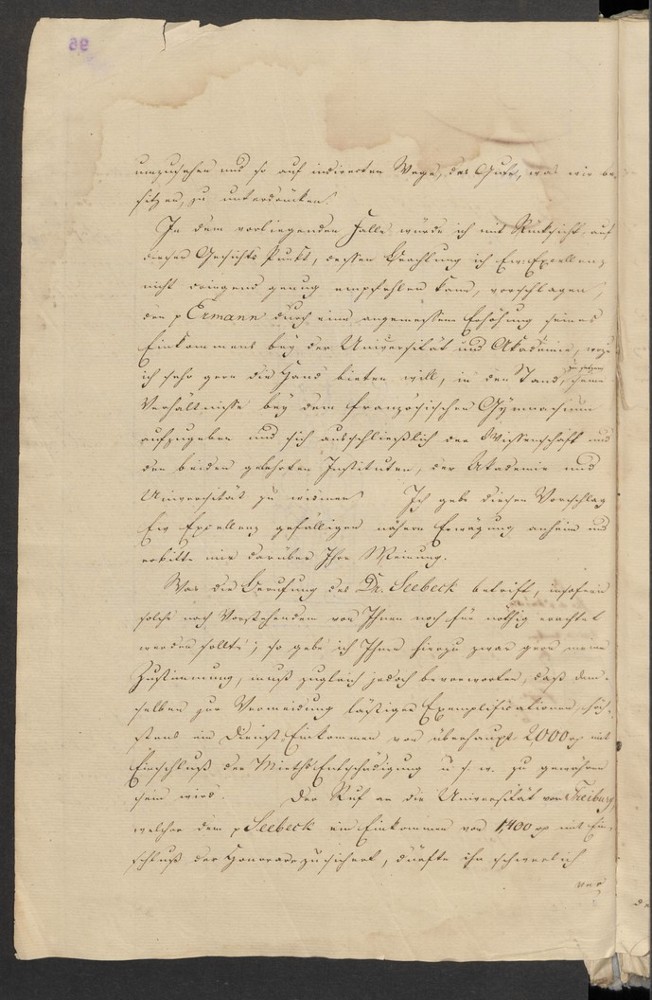 umzusehen und so auf indirectem Wege, das Gute, was wir be-
sitzen, zu unterdrücken.
In dem vorliegenden Falle würde ich mit Rücksicht auf
diesen Gesichts Punkt, dessen Beachtung ich Ew. Excellenz
nicht dringend genug empfehlen kann, vorschlagen,
den p Ermann durch eine angemessene Erhöhung seines
Einkommens bey der Universität und Akademie, wozu
ich sehr gern die Hand bieten will, in den Stand zu setzen, seine
Verhältnisse bey dem französischen Gymnasium
aufzugeben und sich ausschließlich der Wissenschaft und
den beiden gelehrten Instituten, der Akademie und
Universität zu widmen. Ich gebe diesen Vorschlag
Ew Excellenz gefälligen nähern Erwägung anheim und
erbitte mir darüber Ihre Meinung.
Was die Berufung des Dr. Seebeck betrift, insofern
solche nach Vorstehendem von Ihnen noch für nöthig erachtet
werden sollte; so gebe ich Ihnen hierzu zwar gern meine
Zustimmung, muß zugleich jedoch bevorworten, daß dem-
selben zur Vermeidung lästiger Exemplificationen höch-
stens ein Dienst Einkommen von überhaupt 2,000 rp mit
Einschluß der Mieths Entschädigung u. s. w. zu gewähren
sein wird. Der Ruf an die Universität von Freiburg,
welcher dem p Seebeck ein Einkommen von 1,400 rp mit Ein-
schluß der Honorare zusichert, dürfte ihn schwerlich